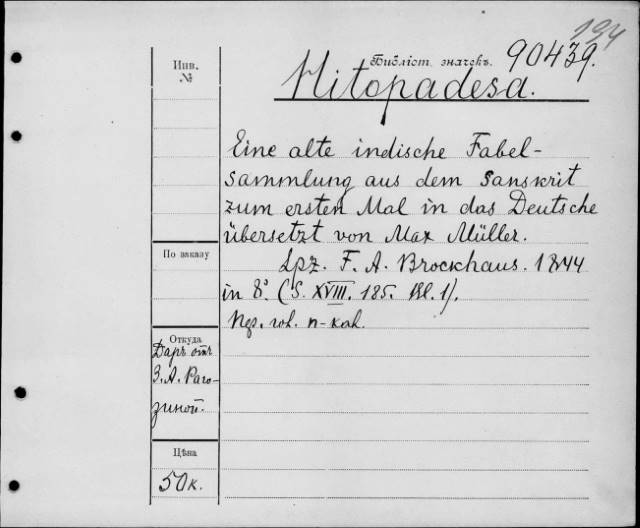 194
Библіот. значекъ.
90439.
Hitopadesa.
Инв.
№
Eine alte indische Fabel-
sammlung aus dem Sanskrit
zum ersten Mal in das Deutsche
übersetzt von Max Müller.
По заказу
Lpz. F. A. Brockhaus. 1844
in 8°. (S. XVIII. 185. Bl. 1).
Откуда
Даръ отъ
З. А. Раго-
зиной.
Цѣна
50 к.